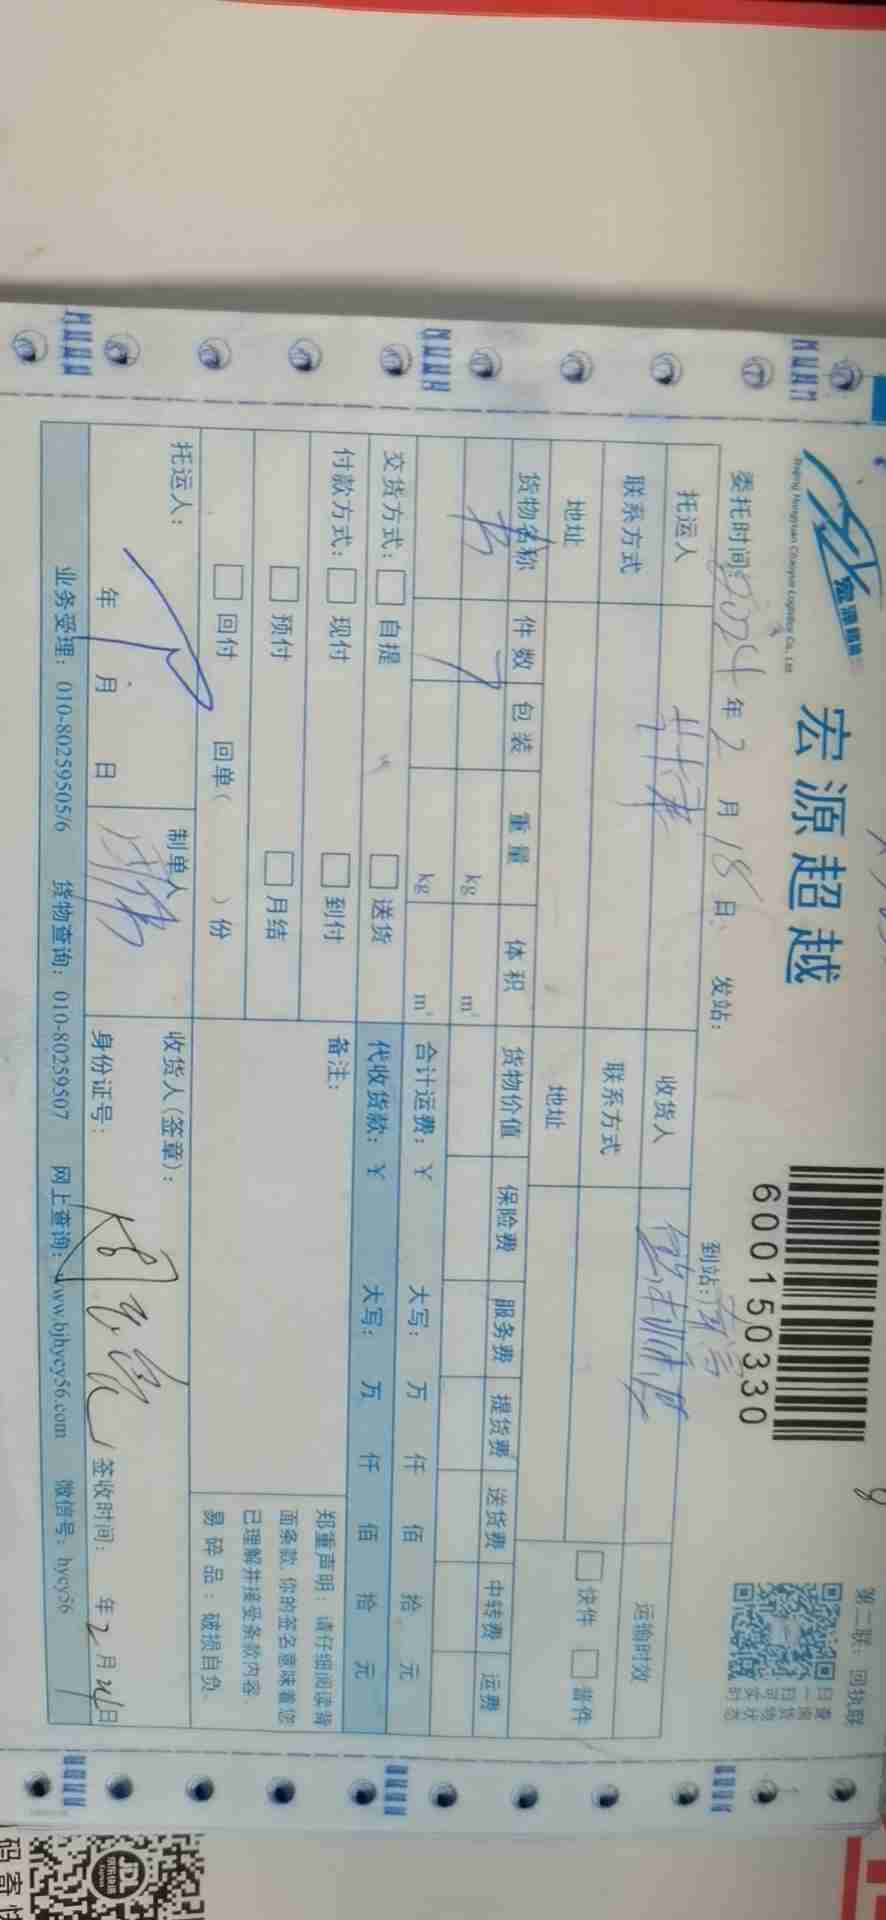 宏源超越
Beijing Hongyuan Chaoyue Logistics Co., Ltd
宏源超越
600150330
第二联：回执联
委托时间：2024年2月18日 发站： 到站：
托运人 收货人 运输时效
联系方式 联系方式 快件 普件
地址 地址
货物名称 件数 包装 重量 体积 货物价值 保险费 服务费 提货费 送货费 中转费 运费
书 kg m³
kg m³ 合计运费：￥ 大写： 万 仟 佰 拾 元
交货方式： 自提 送货 代收货款：￥ 大写： 万 仟 佰 拾 元
付款方式： 现付 到付 备注：
预付 月结
回付 回单（ ）份
郑重声明：请仔细阅读背
面条款，你的签名意味着您
已理解并接受条款内容。
易碎品：破损自负。
托运人： 制单人 收货人(签章)：
年 月 日 身份证号： 签收时间： 年2月21日
业务受理：010-80259505/6 货物查询：010-80259507 网上查询：www.bjhycy56.com 微信号：hycy56